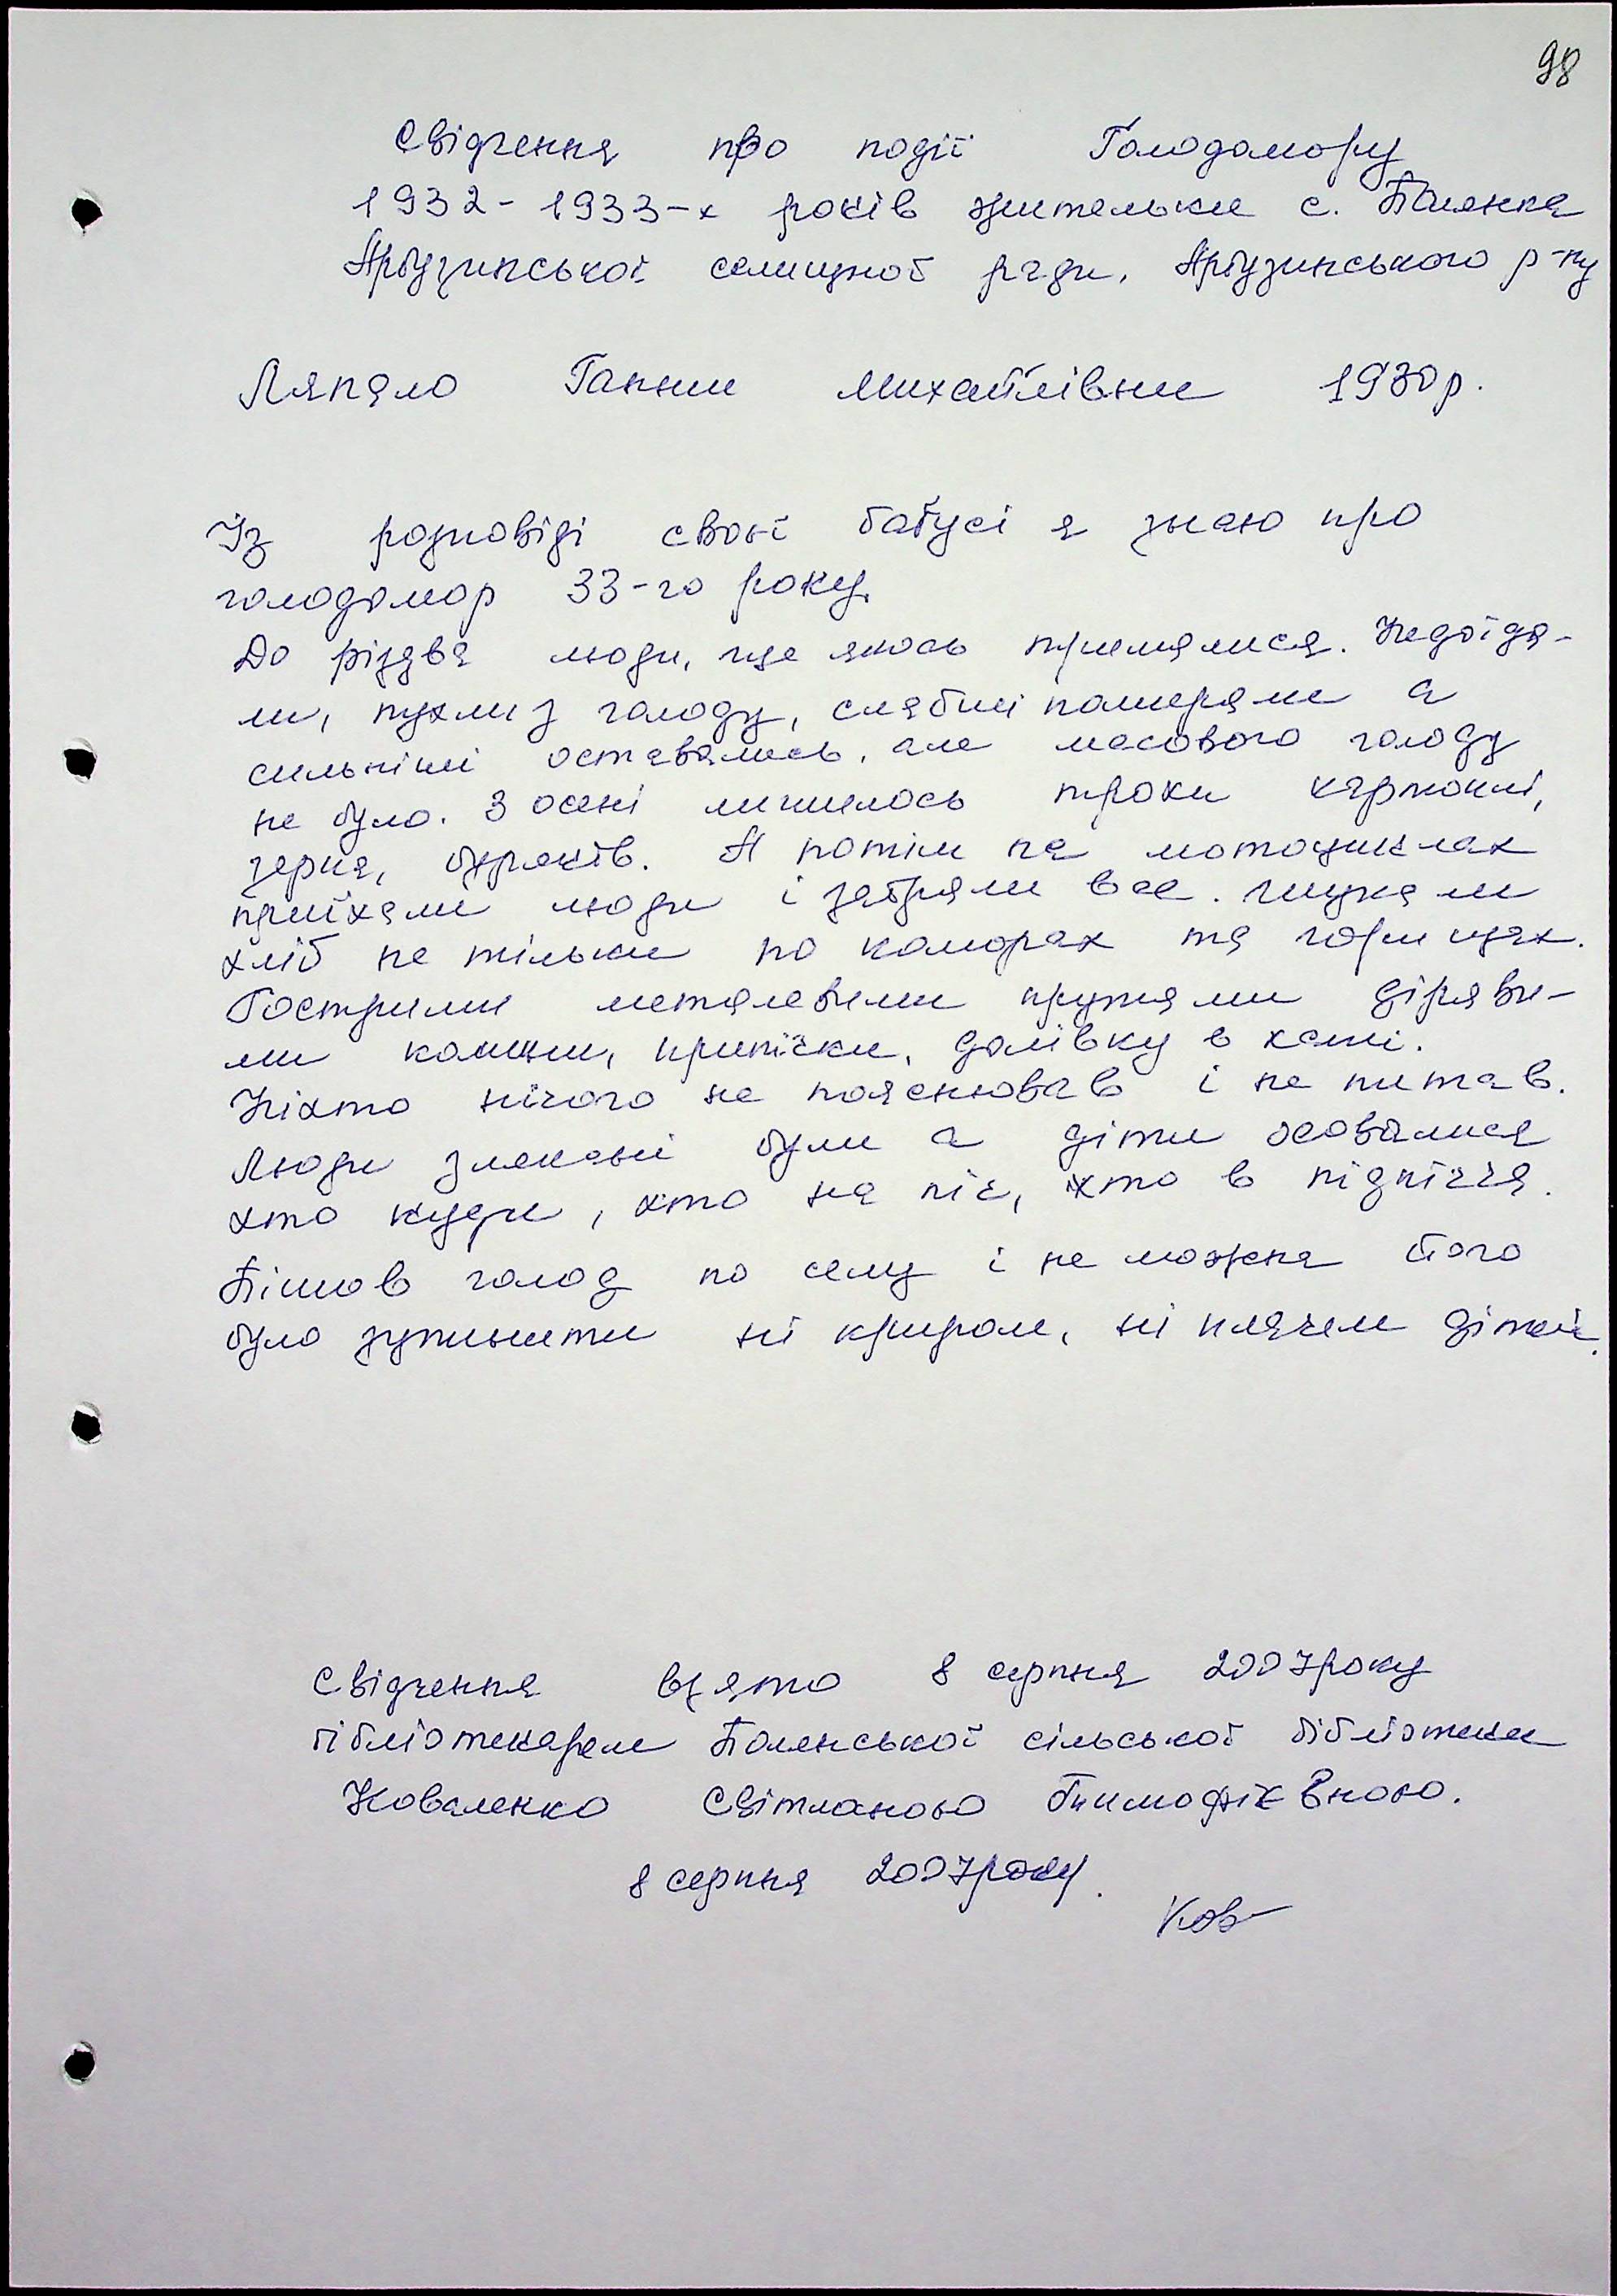 98
Свідчення про події Голодомору
1932-1933-х років жительки с. Полянка
Арбузинської селищної ради, Арбузинського р-ну
Ляпало Ганни Михайлівни 1930р.
Із розповіді своєї бабусі я знаю про
голодомор 33-го року.
До різдва люди, ще якось трималися. Недоїда-
ли, пухли з голоду, слабші помирали а
сильніші оставались, але масового голоду
не було. З осені лишилось трохи картоплі,
зерна, буряків. А потім на мотоциклах
приїхали люди і забрали все. Шукали
хліб не тільки по коморах та горищах.
Гострими металевими прутами діряви-
ли комини, припічки, долівку в хаті.
Ніхто нічого не пояснював і не питав.
Люди злякані були а діти ховалися
хто куди, хто на піч, хто в підпіччя.
Пішов голод по селу і не можна його
було зупинити ні криком, ні плачем дітей.
Свідчення взято 8 серпня 2007року
бібліотекарем Полянської сільської бібліотеки
Коваленко Світланою Тимофіївною.
8 серпня 2007року.
Ков